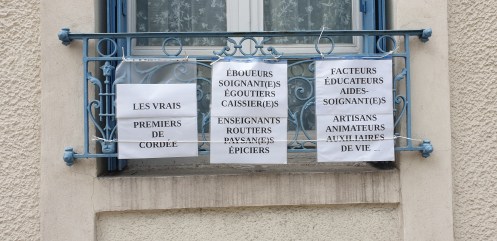 LES VRAIS
PREMIERS
DE
CORDÉE
ÉBOUEURS
SOIGNANT(E)S
ÉGOUTIERS
CAISSIER(E)S
ENSEIGNANTS
ROUTIERS
PAYSAN(E)S
ÉPICIERS
FACTEURS
ÉDUCATEURS
AIDES-
SOIGNANT(E)S
ARTISANS
ANIMATEURS
AUXILIAIRES
DE VIE